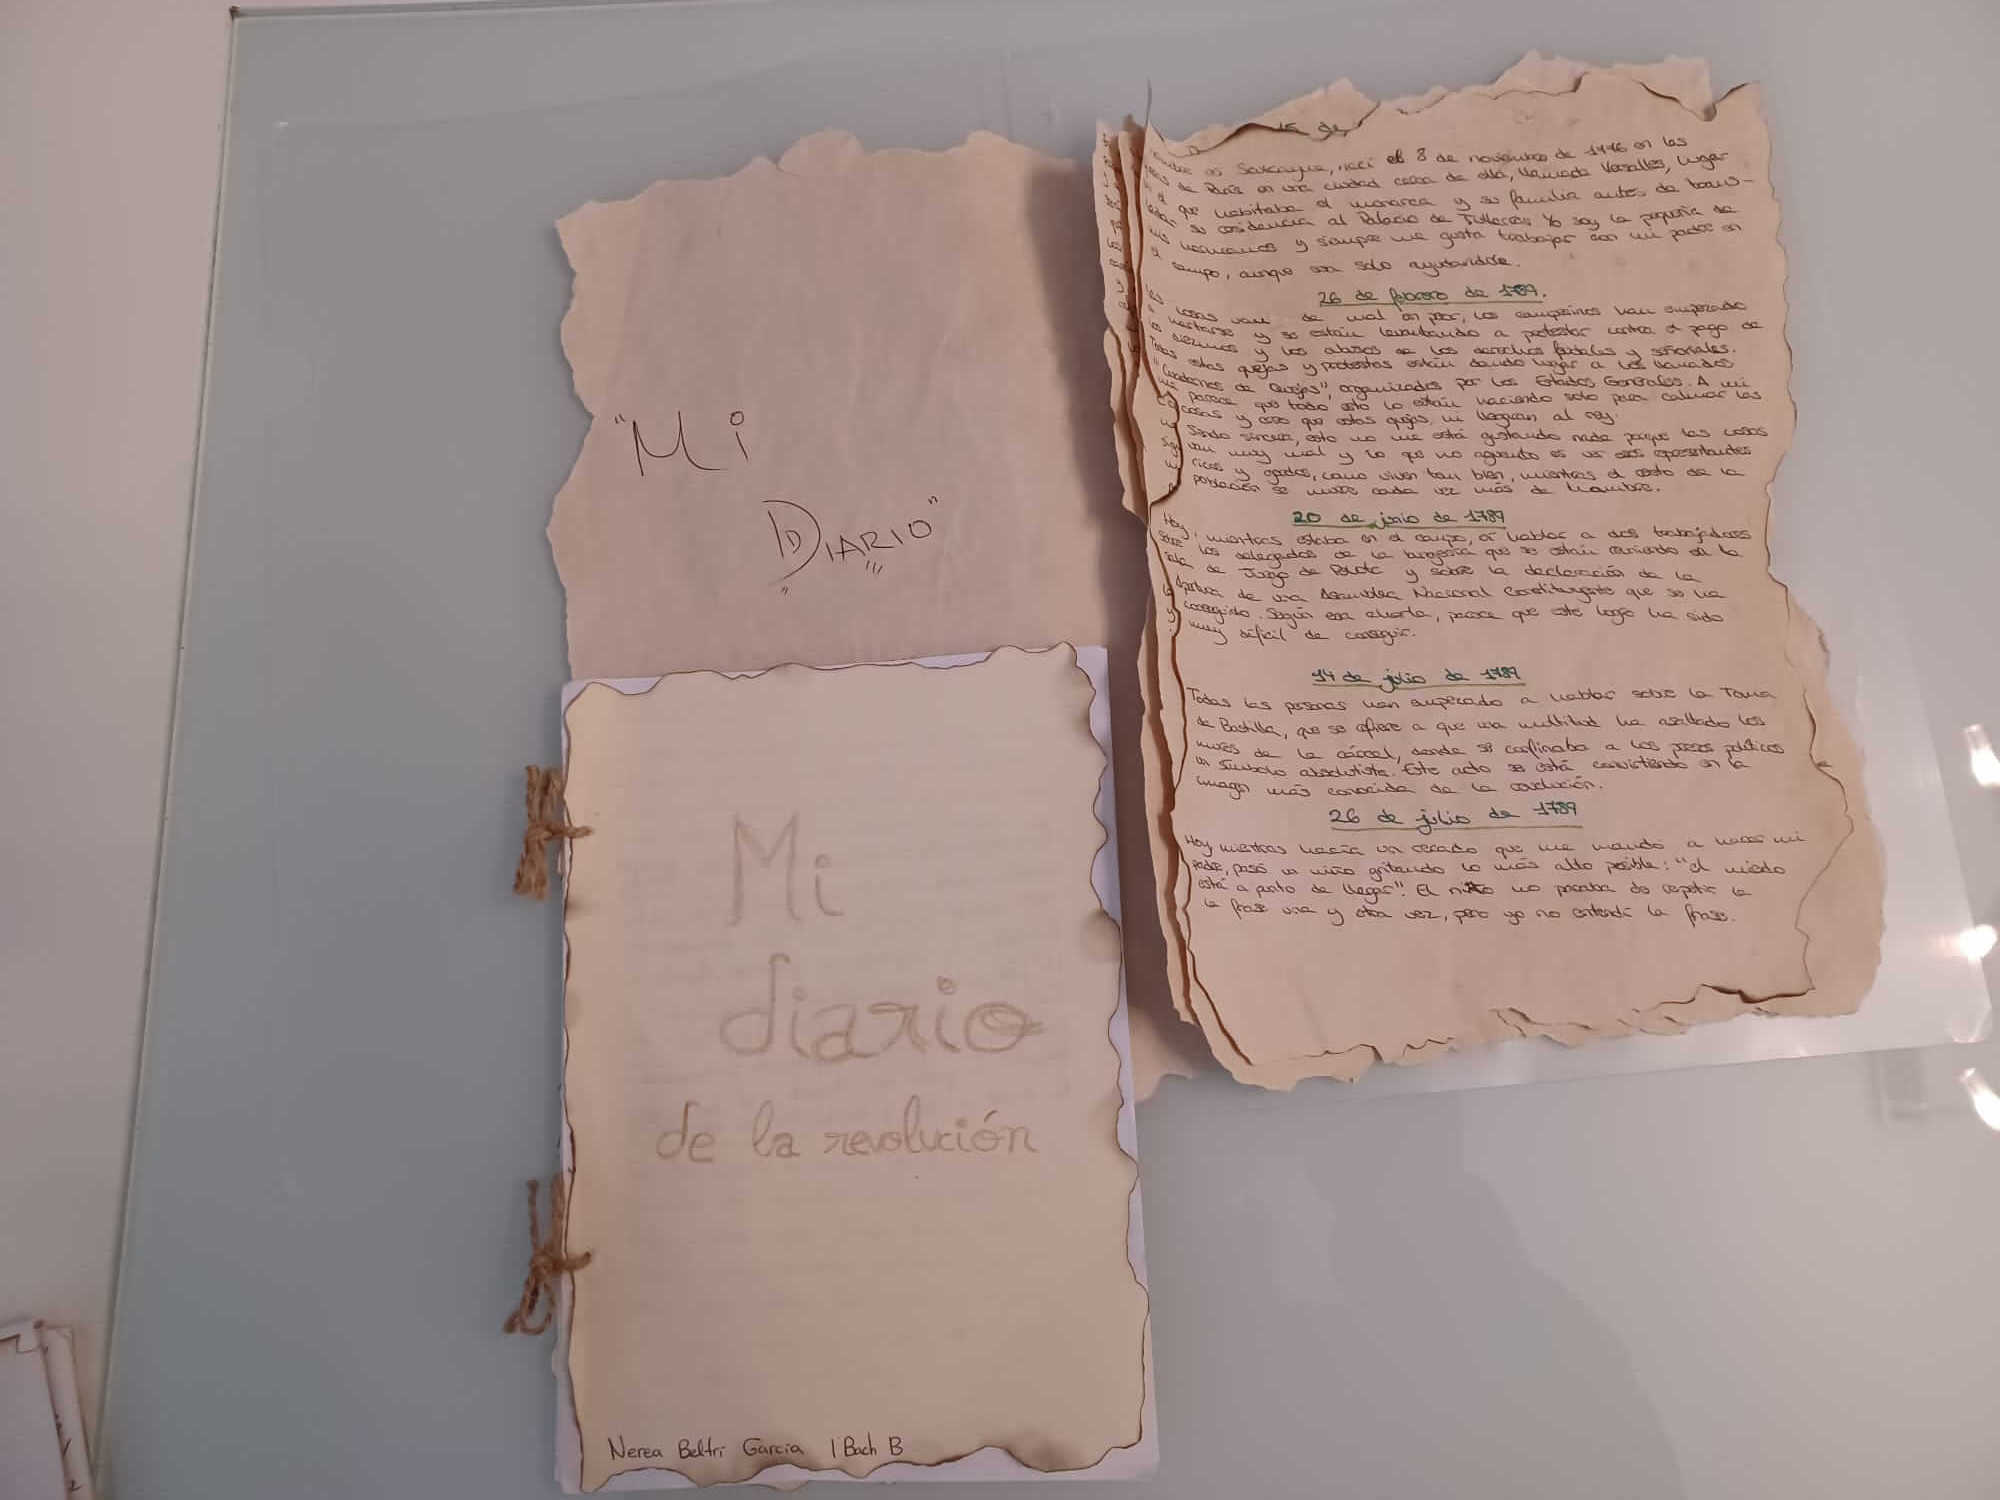 "Mi
Diario"
Mi
diario
de la revolución
Nerea Beltri García 1 Bach B
15 de
es nací el 8 de noviembre de 1776 en las
de París en una ciudad cerca de allí, llamada Versalles, lugar
el que habitaba el monarca y su familia antes de trans-
ladar su residencia al Palacio de Tullerías Yo soy la pequeña de
mis hermanos y siempre me gusta trabajar con mi padre en
el campo, aunque sea solo ayudándole.
26 de febrero de 1789.
Las cosas van de mal en peor, los campesinos han empezado
a y se están levantando a protestar contra el pago de
los diezmos y los abusos de los derechos feudales y señoriales.
Todas estas quejas y protestas están dando lugar a los llamados
"Cuadernos de Quejas", organizados por los Estados Generales. A mi
me parece que todo esto lo están haciendo solo para calmar las
cosas y creo que estas quejas, ni lleguen al rey.
Siendo sincera, esto no me está gustando nada porque las cosas
van muy mal y lo que no aguanto es ver esos representantes
ricos y gordos, como viven tan bien, mientras el resto de la
población se muere cada vez más de hambre.
20 de junio de 1789
Hoy, mientras estaba en el campo, oí hablar a dos trabajadores
sobre los delegados de la burguesía que se están reuniendo en la
sala de Juego de Pelota y sobre la declaración de la
Apertura de una Asamblea Nacional Constituyente que se ha
conseguido. Según esa charla, parece que este logro ha sido
muy difícil de conseguir.
14 de julio de 1789
Todas las personas han empezado a hablar sobre la Toma
de Bastilla, que se refiere a que una multitud ha asaltado los
muros de la cárcel, donde se confinaba a los presos políticos
un símbolo absolutista. Este acto se está convirtiendo en la
imagen más conocida de la revolución.
26 de julio de 1789
Hoy mientras hacía un recado que me mandó a hacer mi
padre, pasó un niño gritando lo más alto posible: "el miedo
está a punto de llegar". El niño no paraba de repetir la
la frase una y otra vez, pero yo no entendí la frase.